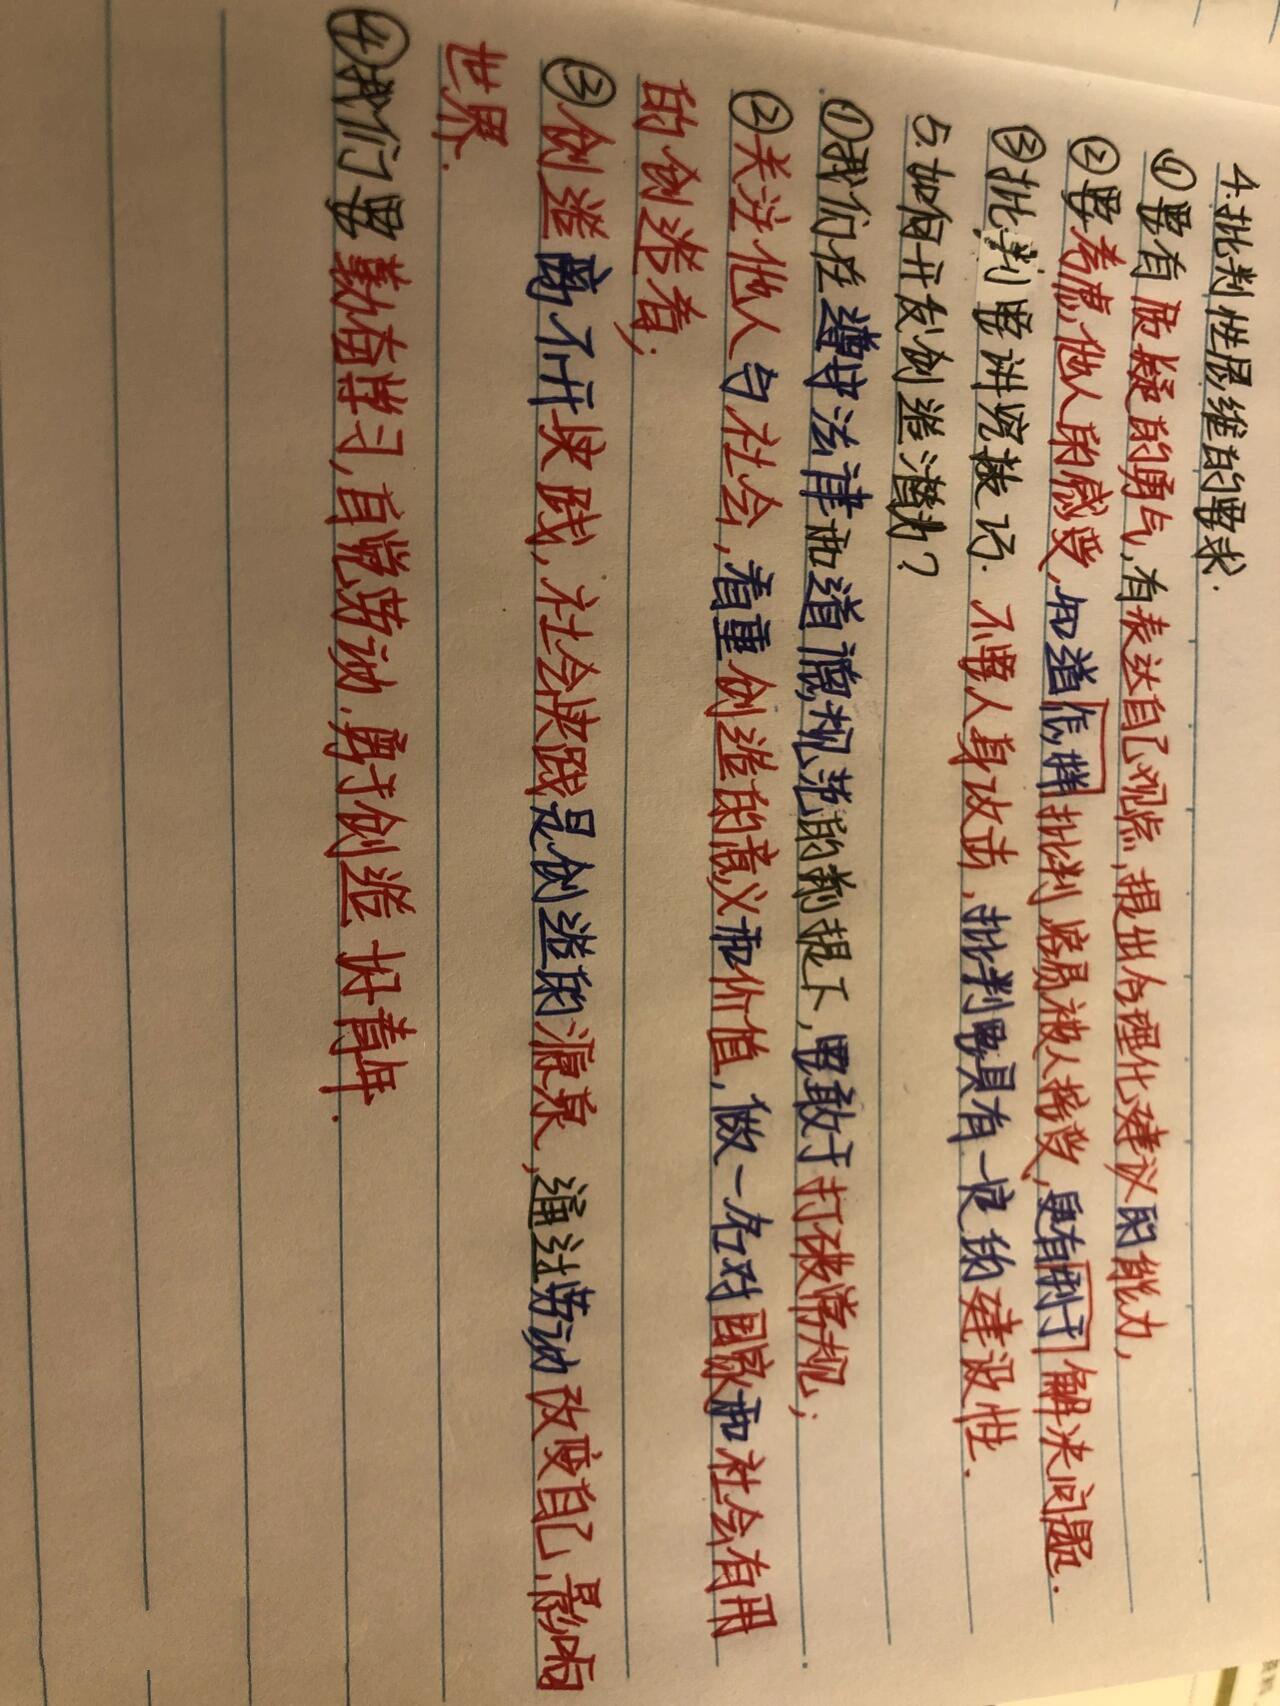 4.批判性思维的要求.
①要有质疑的勇气,有表达自己观点,提出合理化建议的能力,
②要考虑他人的感受,知道怎样批判容易被人接受,更有利于解决问题.
③批判要讲究技巧.不要人身攻击,批判要具有一定的建设性.
5.如何开发创造潜力?
①我们在遵守法律和道德规范的前提下,要敢于打破常规;
②关注他人与社会,看重创造的意义和价值,做一名对国家和社会有用
的创造者;
③创造离不开实践,社会实践是创造的源泉,通过劳动改变自己,影响
世界.
④我们要勤奋学习,自觉劳动,勇于创造 好青年.